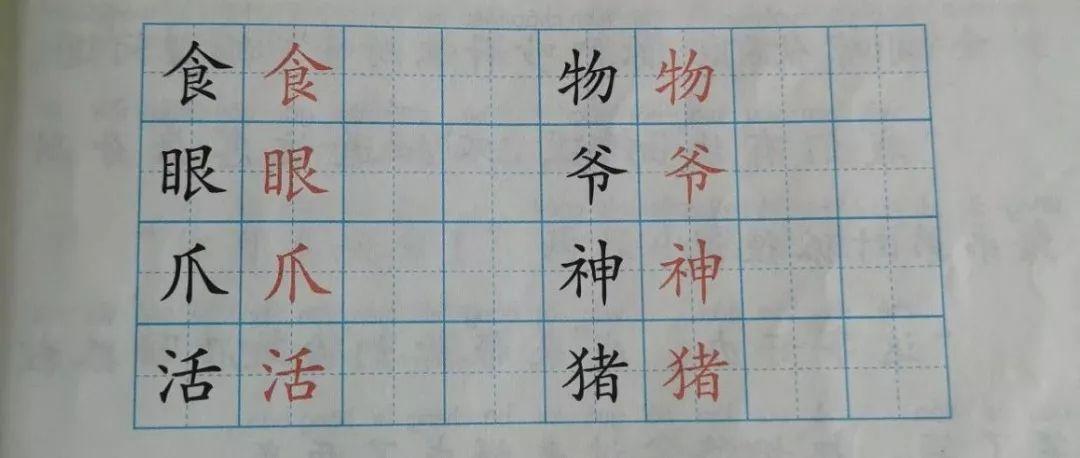 食 食 物 物
眼 眼 爷 爷
爪 爪 神 神
活 活 猪 猪